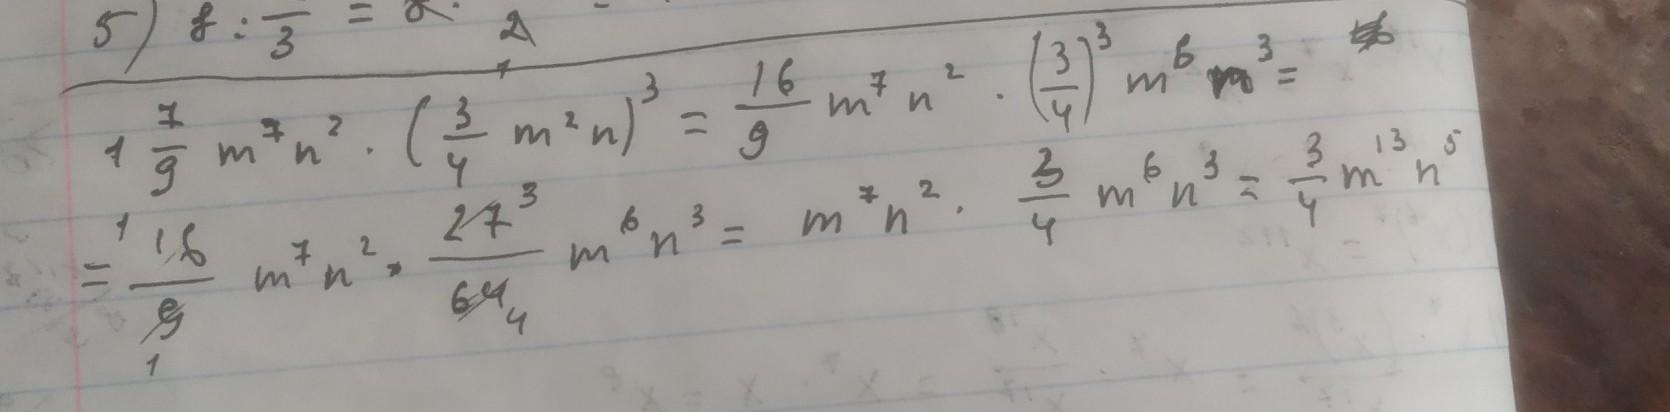 5) 8 : —/3 = 2
1 7/9 m⁷n² · (3/4 m²n)³ = 16/9 m⁷n² · (3/4)³ m⁶ n³ =
= 16/9 m⁷n² · 27/64 m⁶n³ = m⁷n² · 3/4 m⁶n³ = 3/4 m¹³n⁵